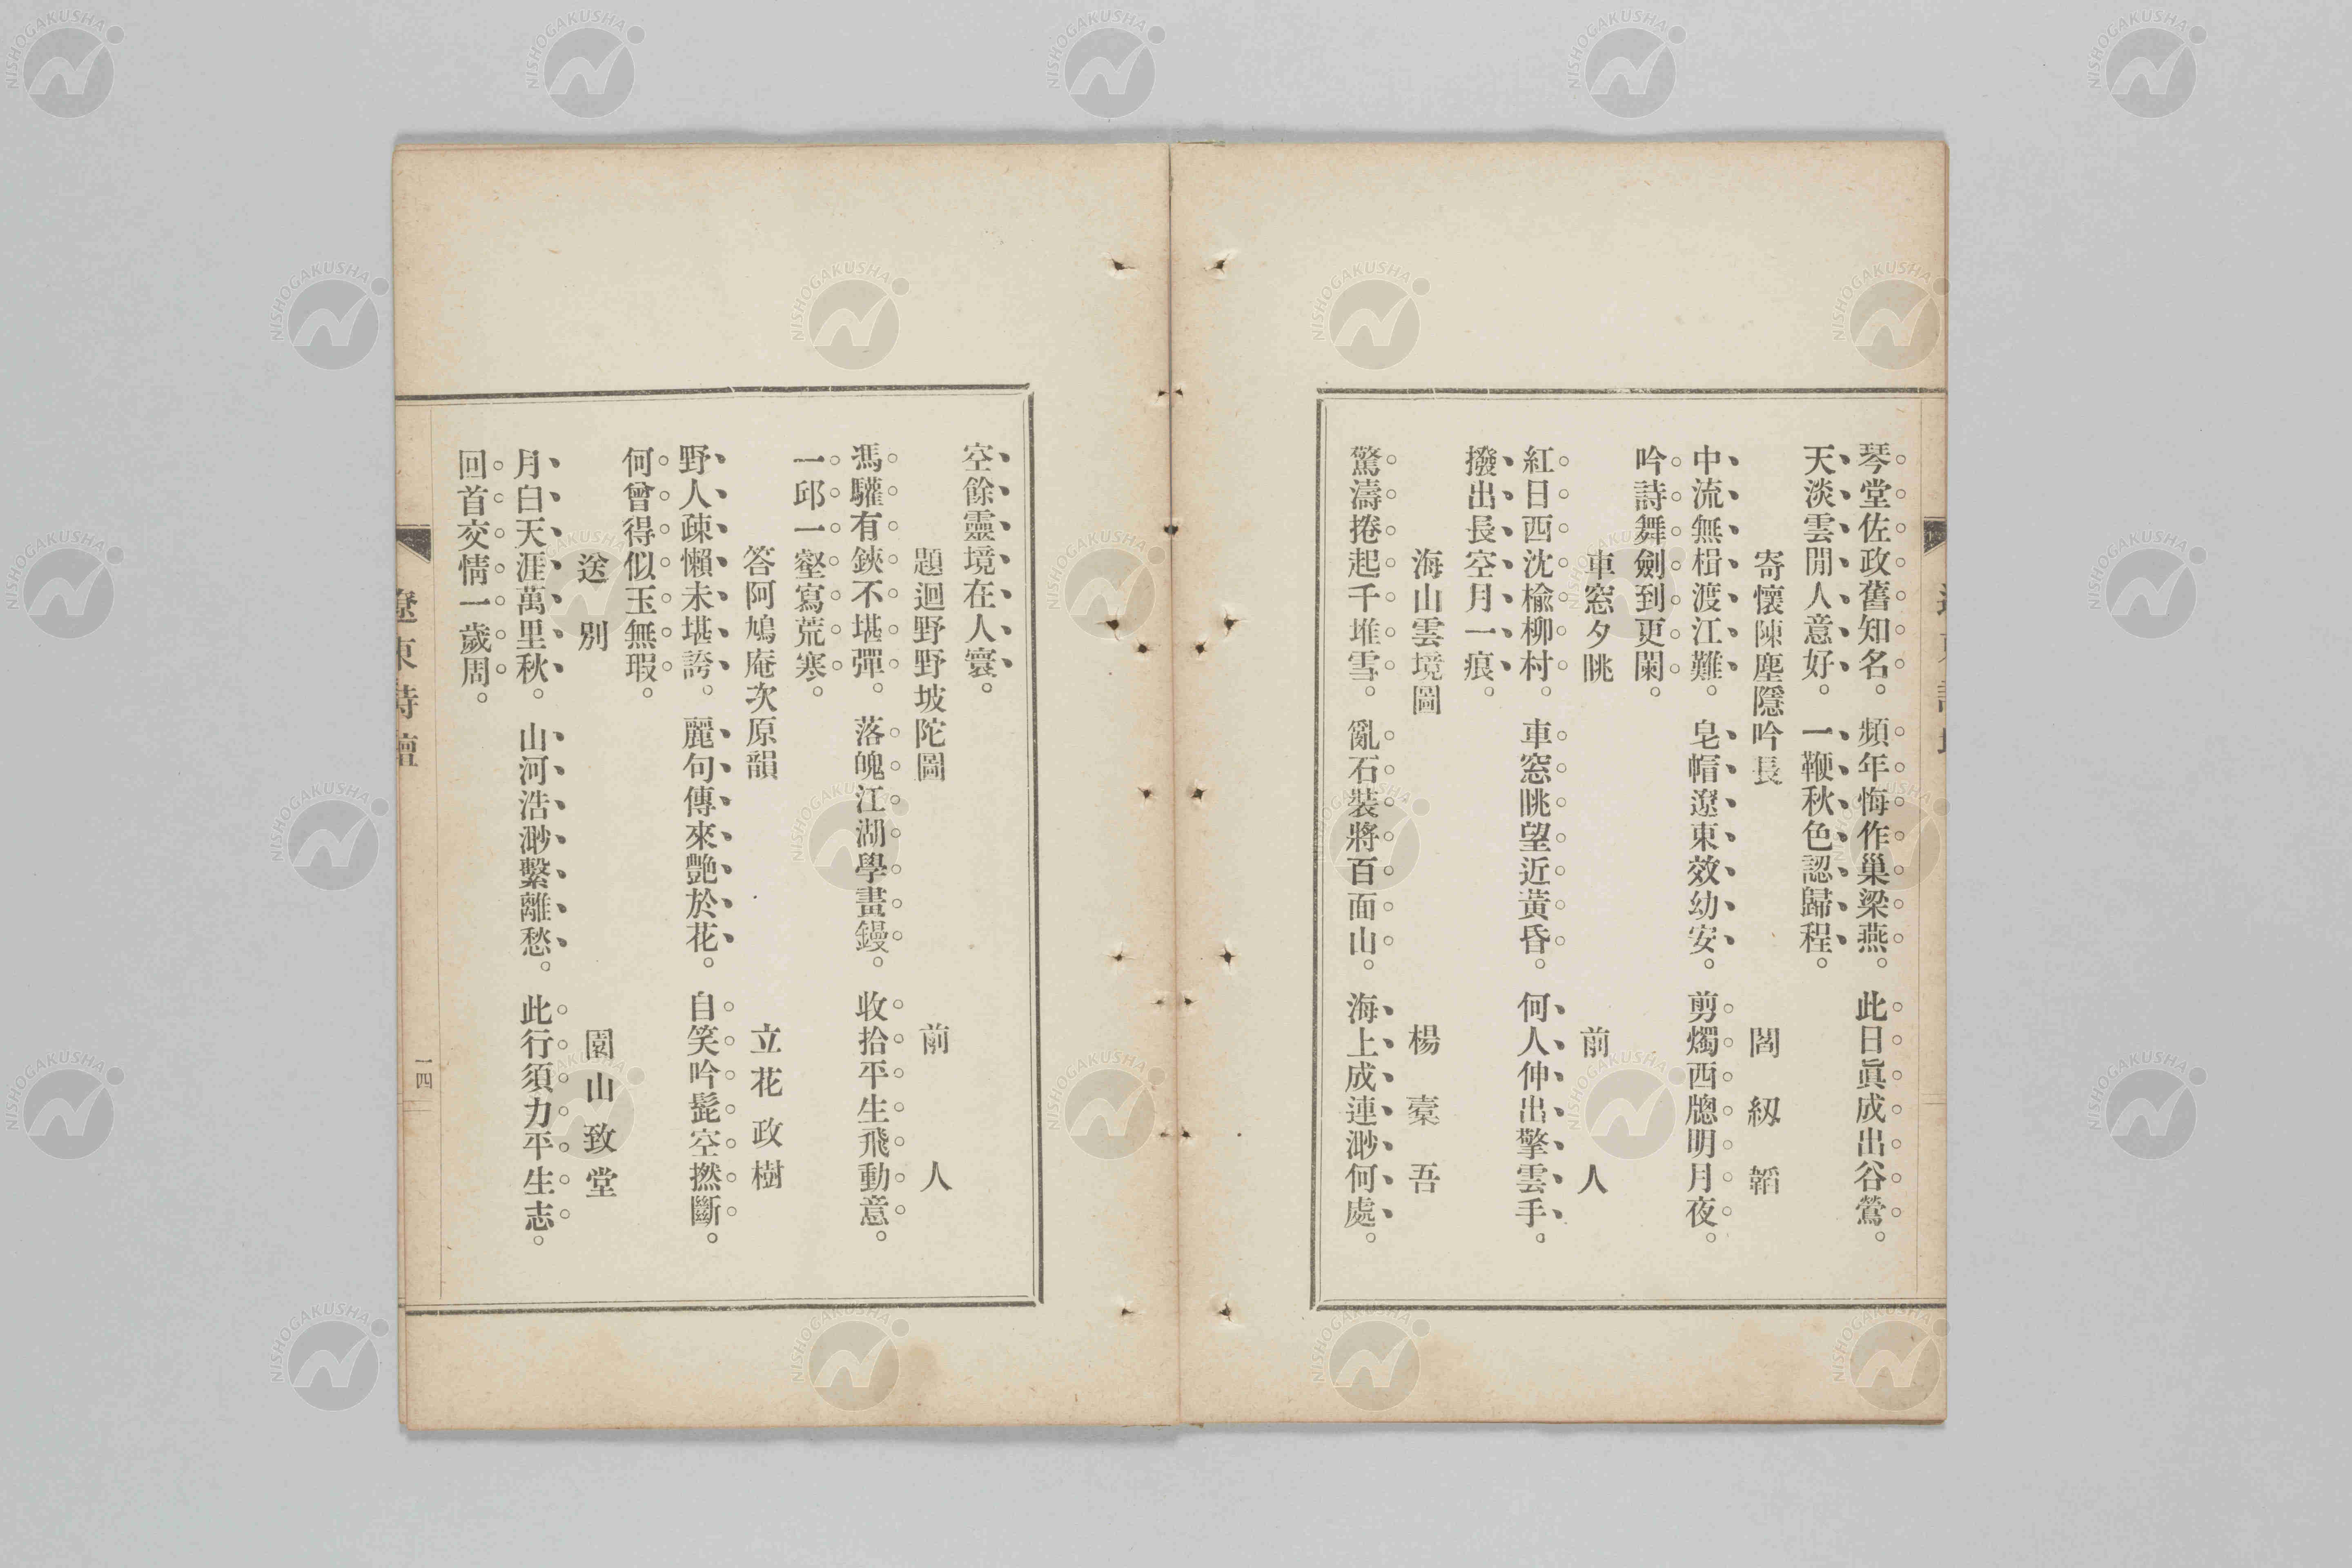 琴堂佐政舊知名。頻年悔作巢梁燕。此日眞成出谷鶯。
天淡雲閒人意好。一鞭秋色認歸程。
寄懷陳塵隱吟長 閻紉韜
中流無楫渡江難。皂帽遼東效幼安。剪燭西牕明月夜。
吟詩舞劍到更闌。
車窓夕眺 前人
紅日西沈楡柳村。車窓眺望近黃昏。何人伸出擎雲手。
撥出長空月一痕。
海山雲境圖 楊槖吾
驚濤捲起千堆雪。亂石裝將百面山。海上成連渺何處。
空餘靈境在人寰。
題迴野野坡陀圖 前人
馮驩有鋏不堪彈。落魄江湖學畫鏝。收拾平生飛動意。
一邱一壑寫荒寒。
答阿鳩庵次原韻 立花政樹
野人疎懶未堪誇。麗句傳來艷於花。自笑吟髭空撚斷。
何曾得似玉無瑕。
送別 園山致堂
月白天涯萬里秋。山河浩渺繫離愁。此行須力平生志。
回首交情一歲周。
遼東詩壇
一四
NISHOGAKUSHA